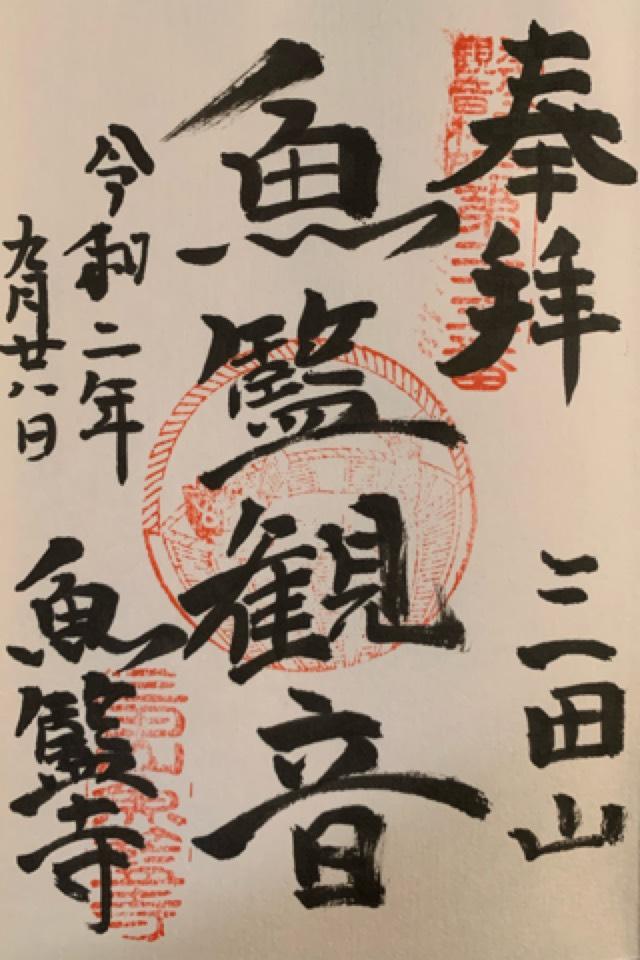 奉拝
三田山
魚籃観音
令和二年
九月廿八日
魚籃寺